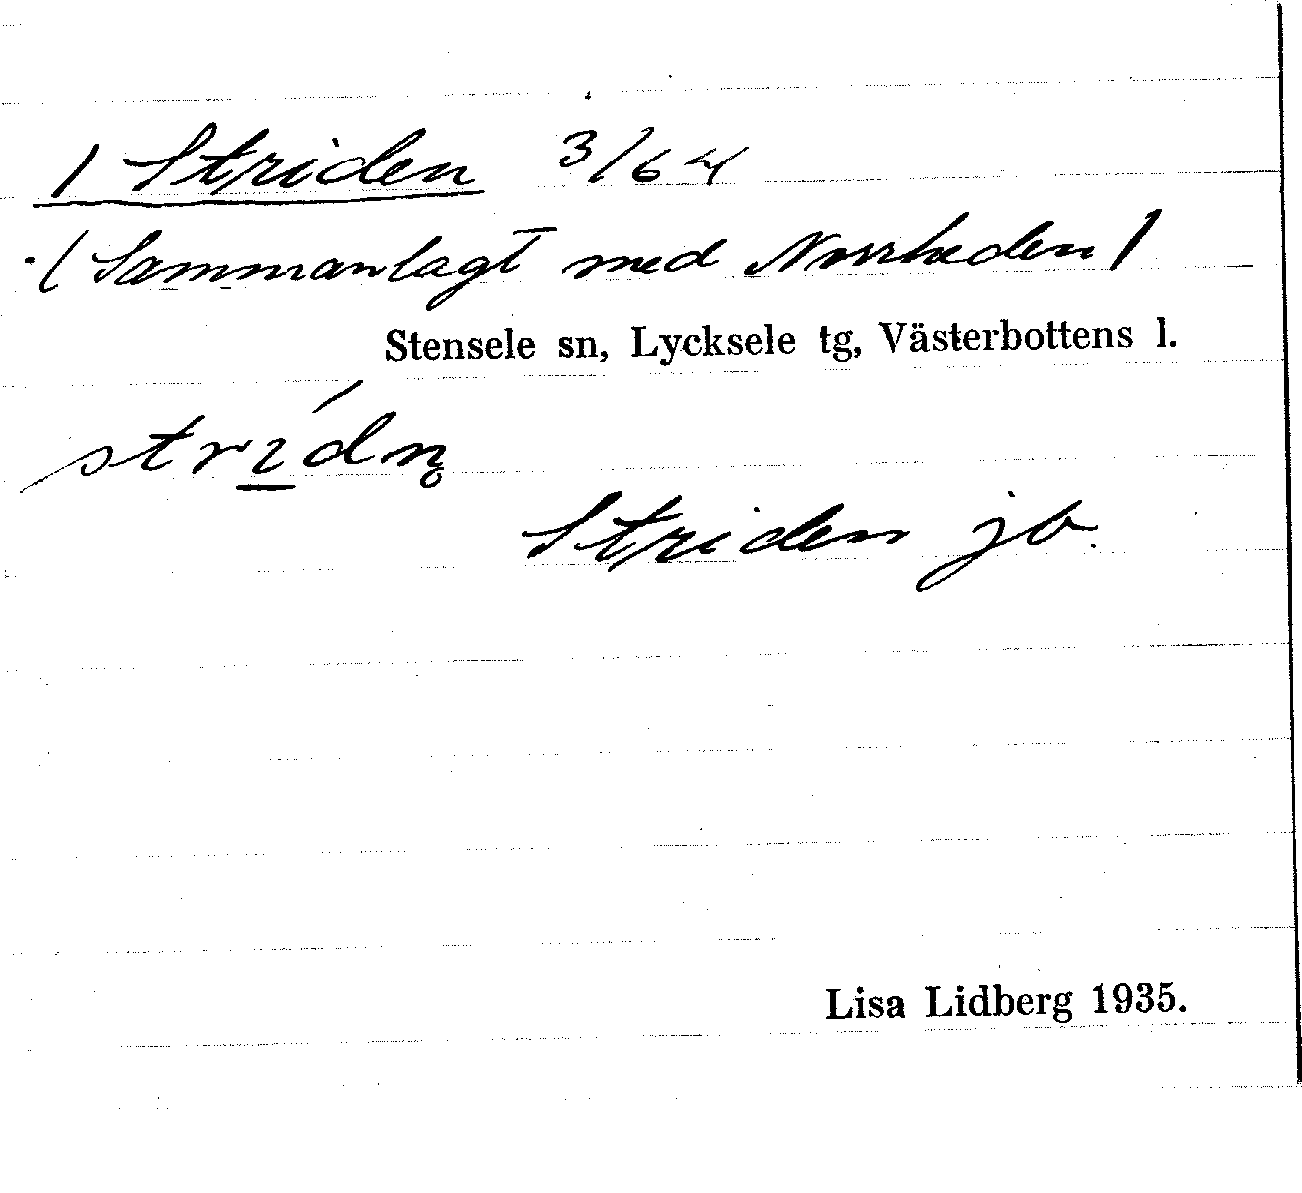 / Striden 3/64
(Sammanlagt med Norrheden)
Stensele sn, Lycksele tg, Västerbottens l.
strídn̥
Striden jb.
Lisa Lidberg 1935.